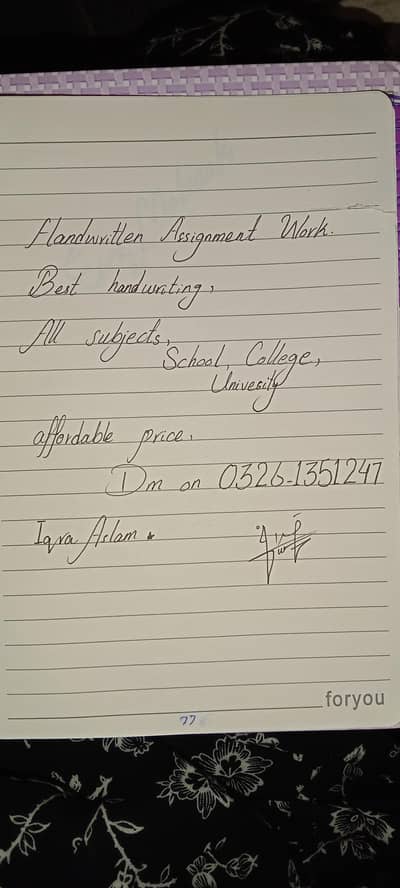 Handwritten Assignment Work.
Best handwriting,
All subjects,
School, College,
Univesity
affordable price.
Dm on 0326-1351247
Iqra Aslam.
foryou
77